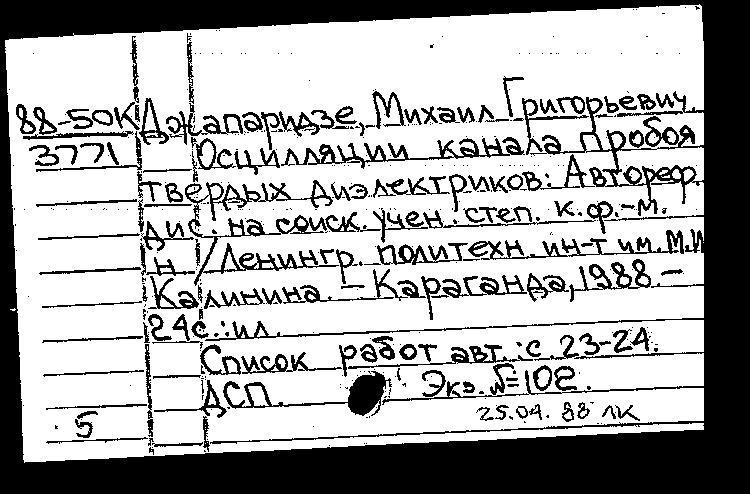 88-50К Джапаридзе, Михаил Григорьевич.
3771 Осцилляции канала пробоя
твердых диэлектриков: Автореф.
дис. на соиск. учен. степ. к.ф.-м.
н. /Ленингр. политехн. ин-т им. М.И
Калинина. – Караганда, 1988. –
24с.:ил.
Список работ авт.: с. 23-24.
ДСП. Экз. №102.
25.04.88 ЛК
5